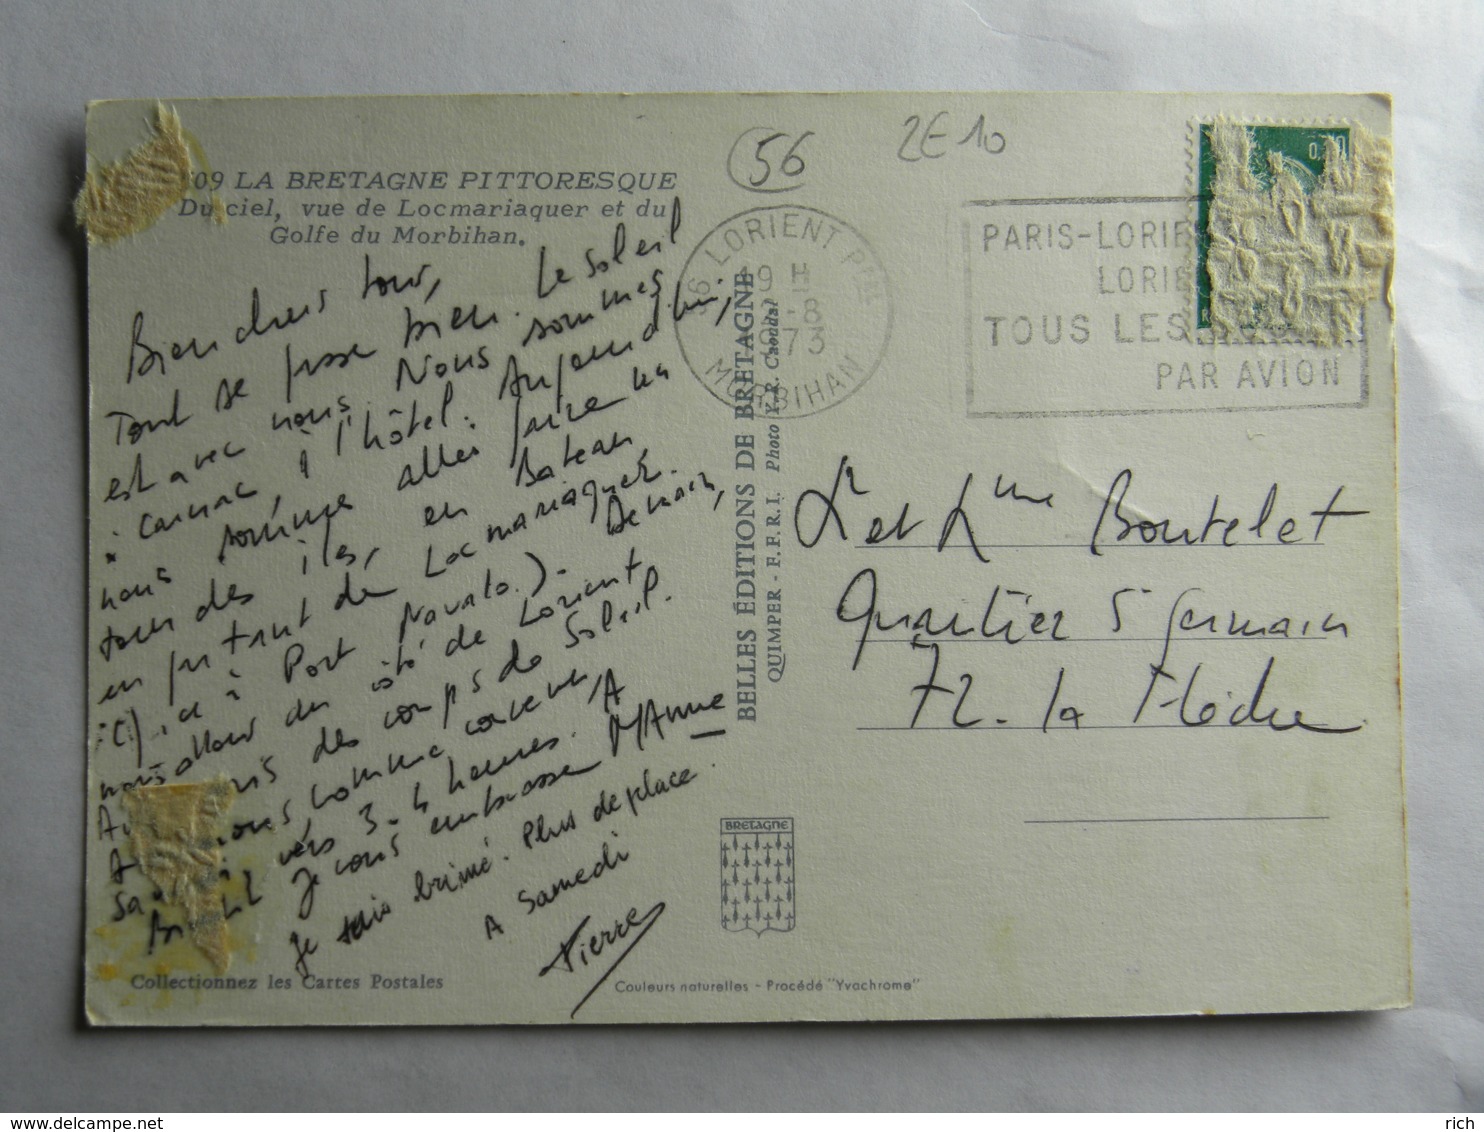 09 LA BRETAGNE PITTORESQUE
Du ciel, vue de Locmariaquer et du
Golfe du Morbihan.
56
2E10
56 LORIENT Pal
19 H
-8
1973
MORBIHAN
PARIS-LORIE
LORIE
TOUS LES
PAR AVION
0,
Bien chers tous,
Tout se passe bien. Le soleil
est avec nous. Nous sommes
à Carnac, à l'hôtel. Aujourd'hui,
nous sommes allés faire un
tour des îles, en Bateau
en partant de Locmariaquer.
(ici à Port Navalo). Demain,
nous allons du côté de Lorient
des coups de Soleil.
nous, comme convenu, A
vers 3-4 heures.
Je vous embrasse M/Anne
Je suis brimé. Plus de place.
A Samedi
Pierre
BELLES ÉDITIONS DE BRETAGNE
QUIMPER - F.F.R.I. Photo Y.R. Caoudal
M et Mme Boutelet
Quartier St Germain
72. la Flèche
BRETAGNE
Collectionnez les Cartes Postales
Couleurs naturelles - Procédé "Yvachrome"
rich